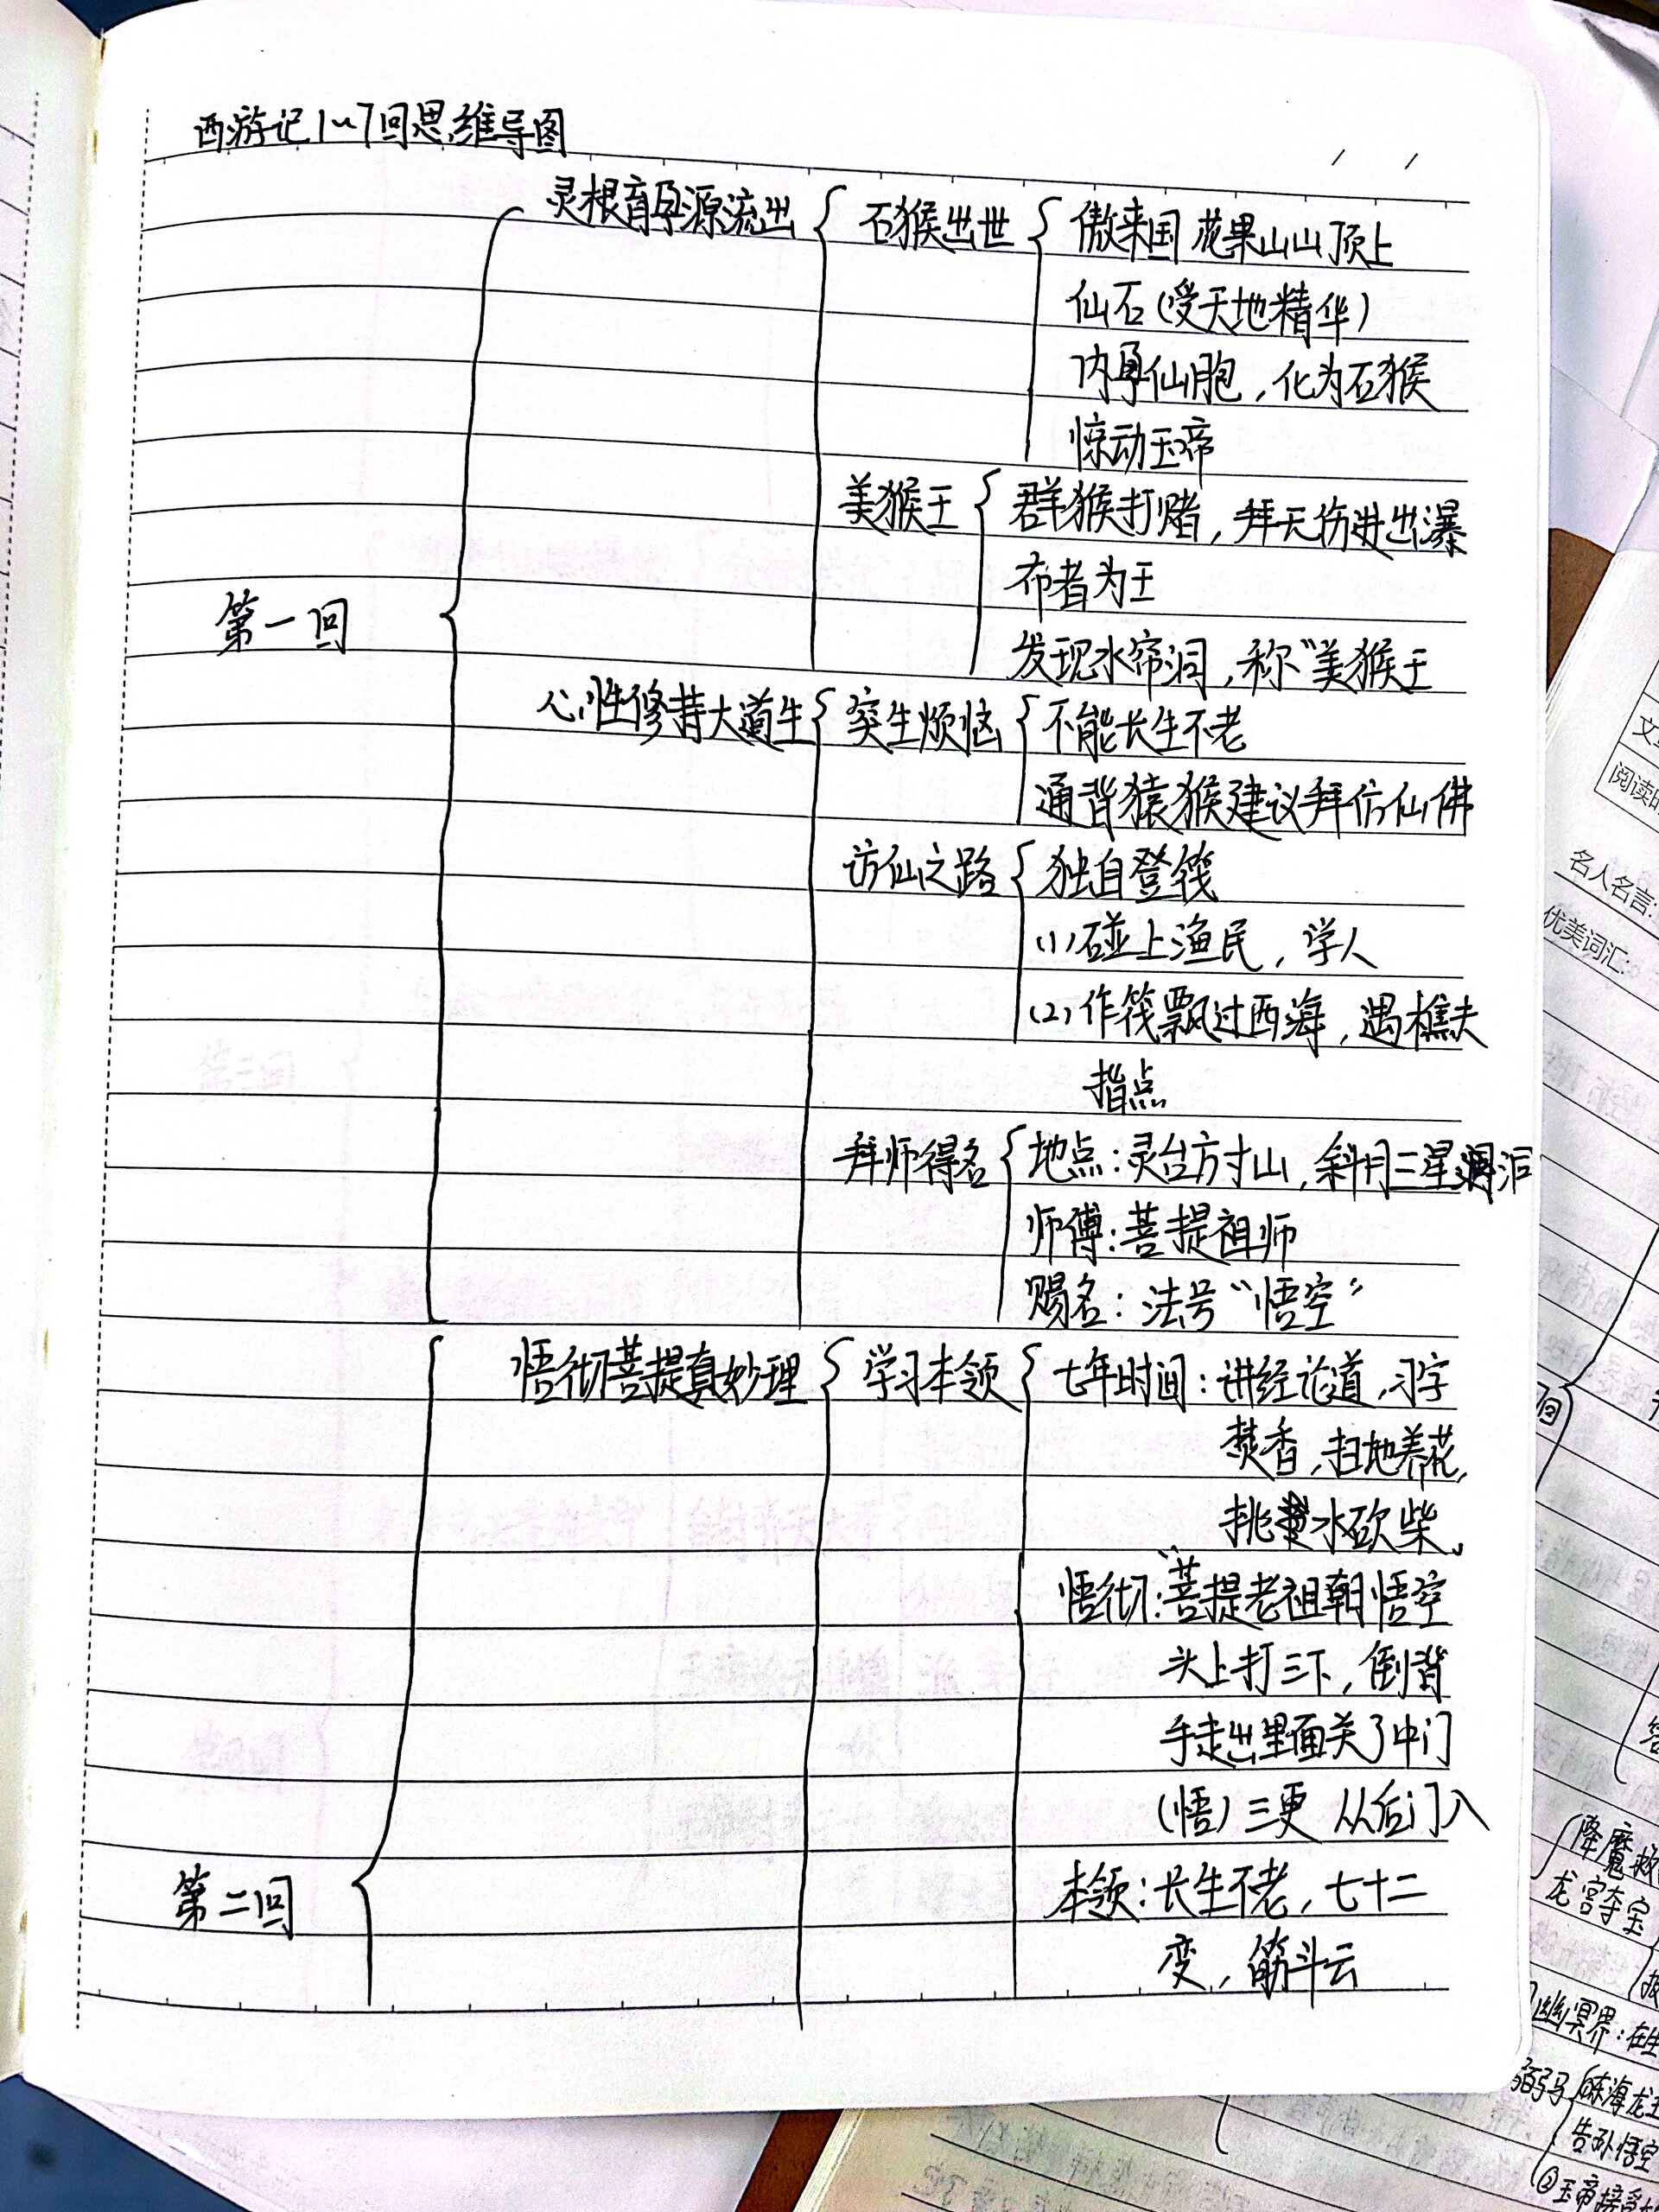 西游记1~7回思维导图
灵根育孕源流出 石猴出世 傲来国 花果山山顶上
仙石(受天地精华)
内孕仙胞,化为石猴
惊动玉帝
美猴王 群猴打赌,拜无伤进出瀑
布者为王
第一回
发现水帘洞,称"美猴王
心性修持大道生 突生烦恼 不能长生不老
通背猿猴建议拜访仙佛
访仙之路 独自登筏
(1)碰上渔民,学人
(2)作筏飘过西海,遇樵夫
指点
拜师得名 地点:灵台方寸山,斜月三星洞
师傅:菩提祖师
赐名:法号"悟空"
悟彻菩提真妙理 学习本领 七年时间:讲经论道,习字
焚香,扫地养花,
挑水砍柴、
悟彻:菩提老祖朝悟空
头上打三下,倒背
手走出里面关了中门
(悟)三更 从后门入
第二回
本领:长生不老,七十二
变,筋斗云
文
阅读
名人名言:
优美词汇:
回
降魔
龙宫夺宝
幽冥界:在生
弼马
东海龙王
告孙悟空
②玉帝接受